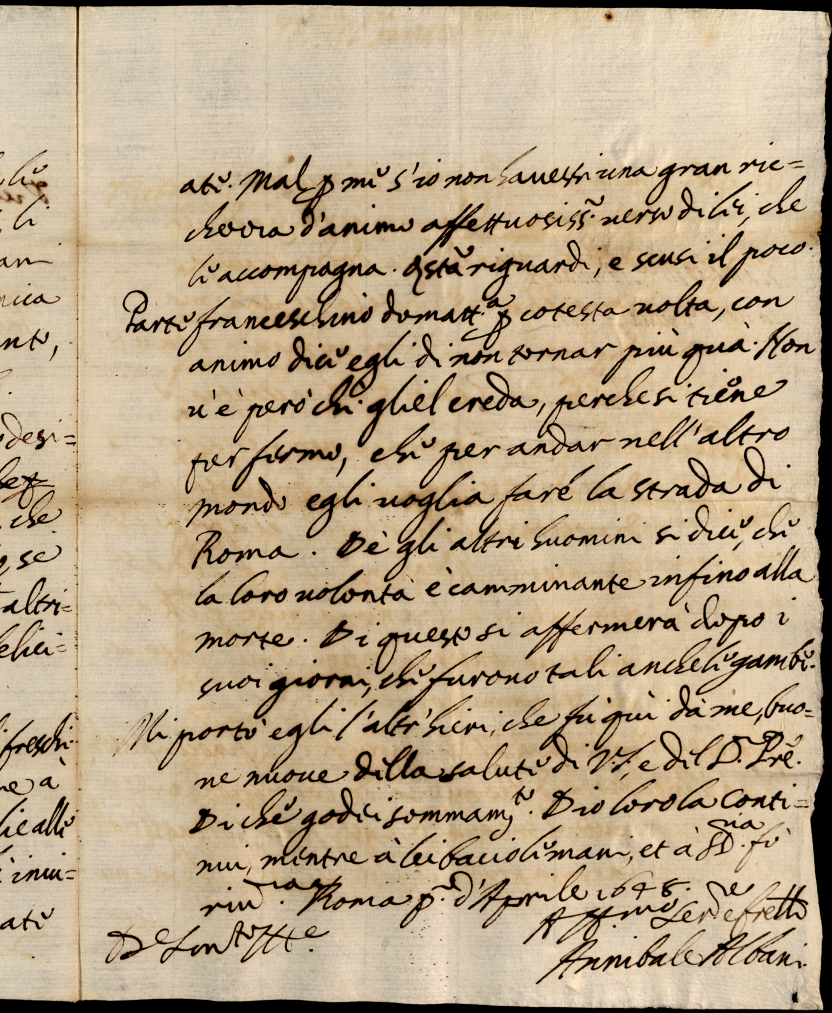 li
li
an
nica
nte,
desi=
che
se
altri=
felici=
freschi
re à
lie alle
inui=
ate
ate. Mal p me s'io non havessi una gran ric=
chezza d'animo affettuosiss.º verso di lei, che
le accompagna. Qsta riguardi, e scusi il poco.
Parte franceschino domatt.ª p cotesta volta, con
animo dice egli di non tornar più quà. Non
v'è però chi gliel creda, perche si tiene
per fermo, che per andar nell'altro
mondo egli voglia fare la strada di
Roma. De gli altri huomini si dice, che
la loro volontà è camminante infino alla
morte. Di questo si affermerà dopo i
suoi giorni, che furono tali anche le gambe.
Mi portò egli l'altr'hieri, che fù quì da me, buo=
ne nuove della salute di V.S. e del S. Prē.
Di che godei sommam.te Dio loro la conti=
nui, mentre à lei bacio le mani, et à
Roma p.º d'Aprile 1648.
Aff.mo Ser.e
Annibale Albani